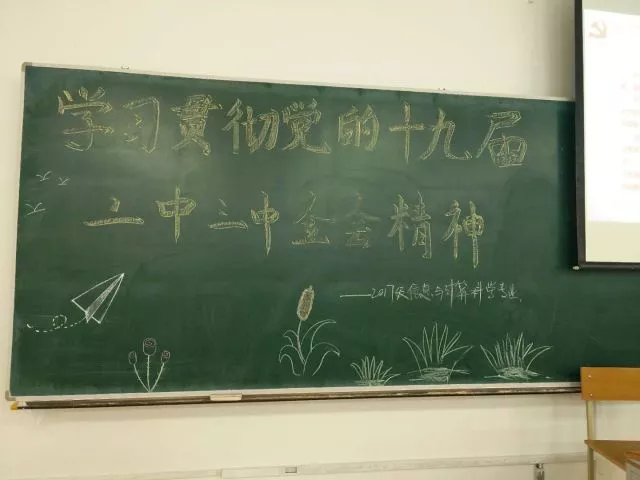 学习贯彻党的十九届
二中三中全会精神
——2017级信息与计算科学专业